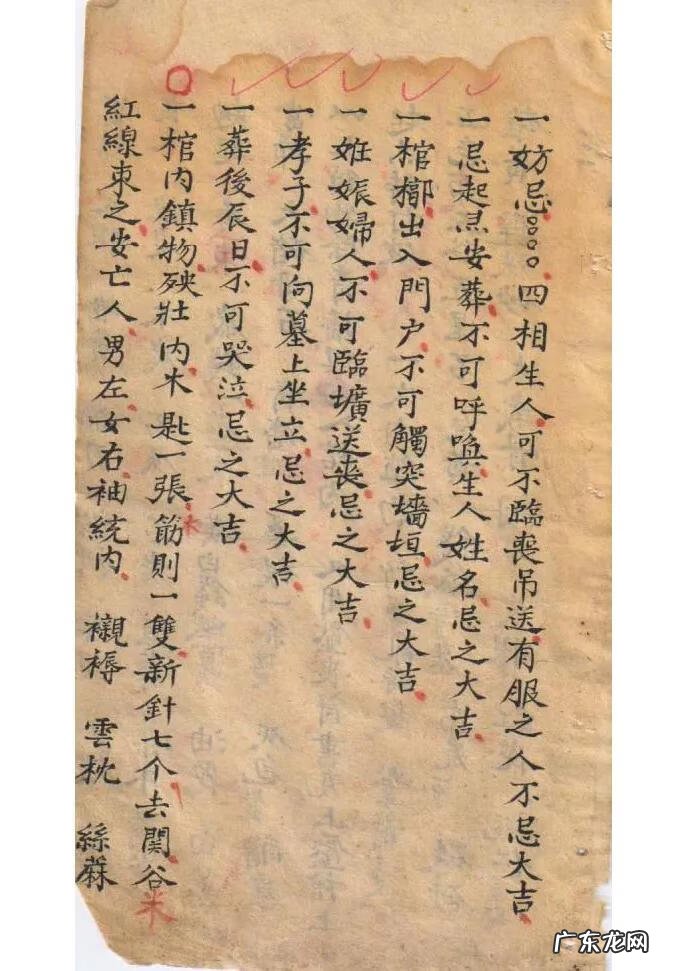 一妨忌○○○○四相生人可不臨喪吊送有服之人不忌大吉
一忌起灵安葬不可呼喚生人姓名忌之大吉
一棺槨出入門户不可觸突墻垣忌之大吉
一姙娠婦人不可臨壙送喪忌之大吉
一孝子不可向墓上坐立忌之大吉
一葬後辰日不可哭泣忌之大吉
一棺內鎮物殃壯內木匙一張筋則一雙新針七个去関谷米
紅線束之安亡人男左女右袖統內 襯褥 雲枕 絲蔴
木
广东龙网